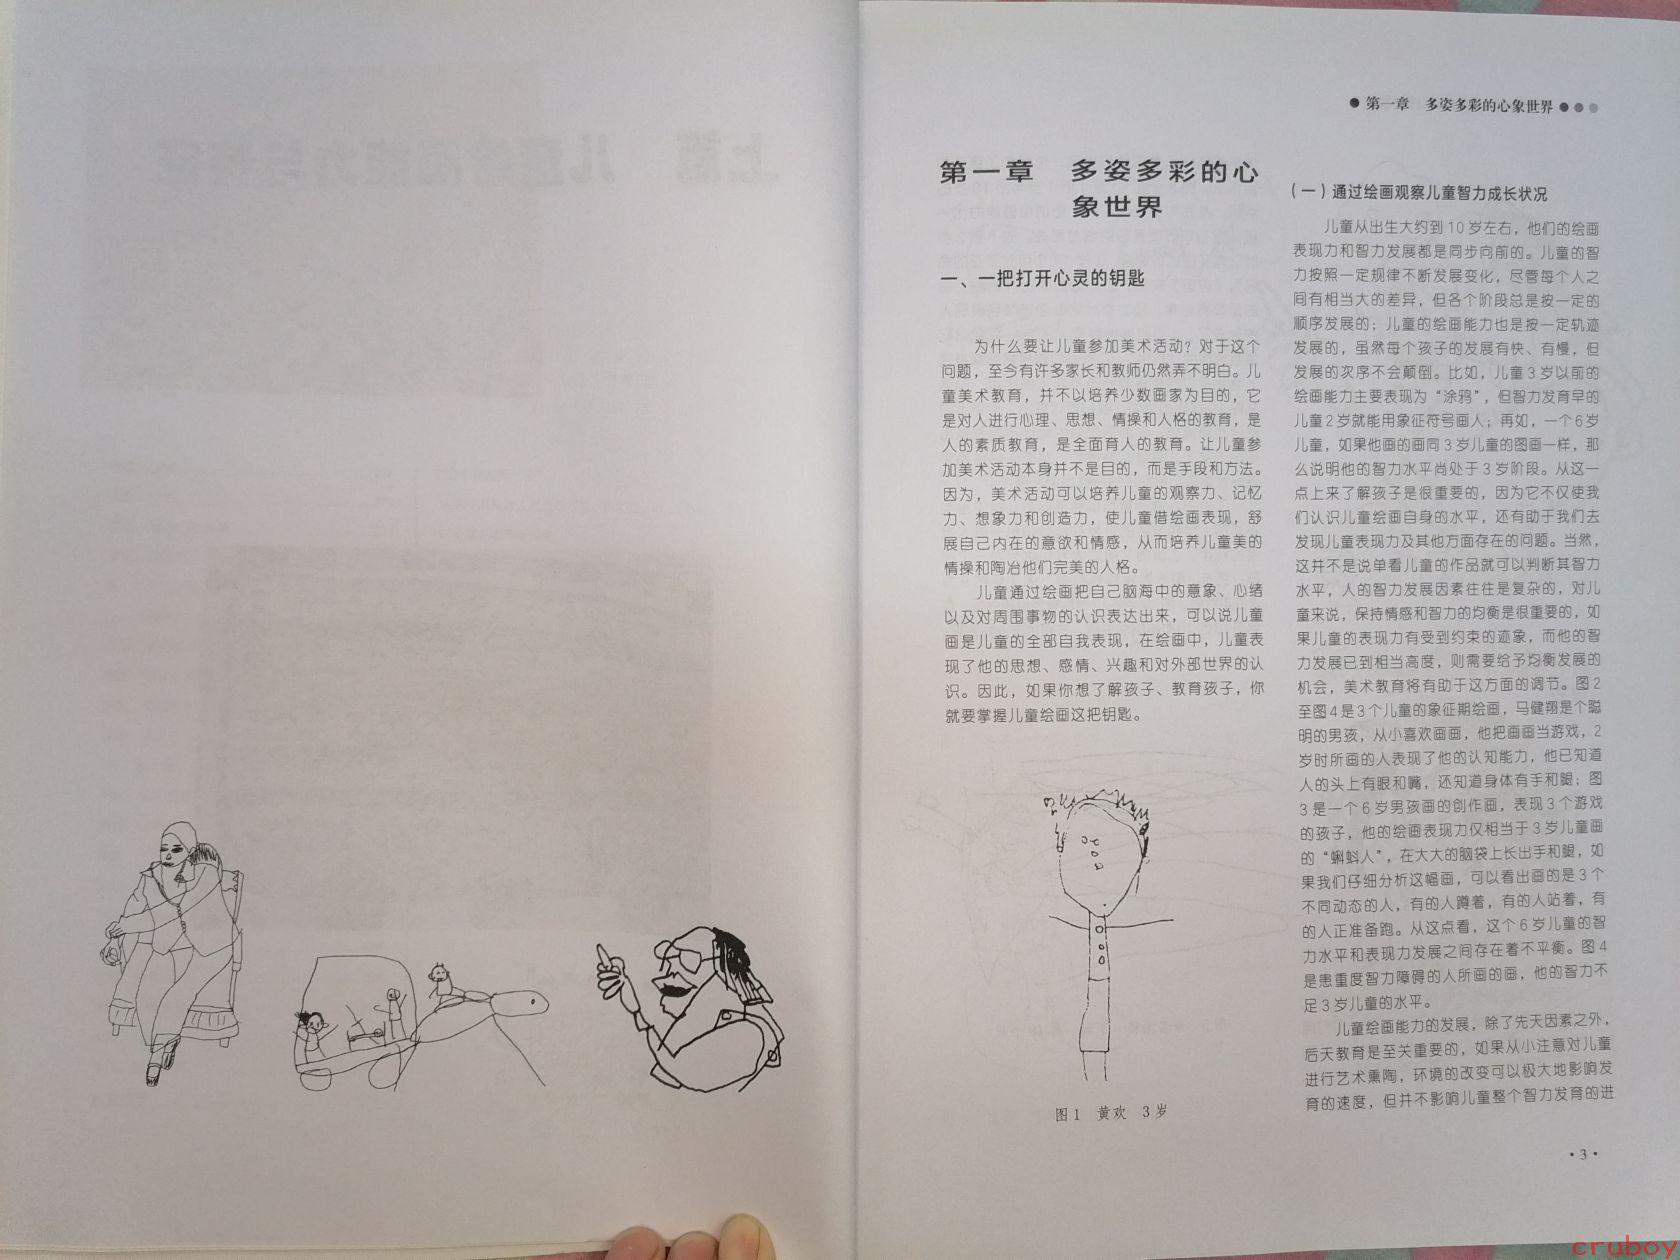 ● 第一章　多姿多彩的心象世界 ●●●
第一章　多姿多彩的心
象世界
一、一把打开心灵的钥匙
为什么要让儿童参加美术活动？对于这个
问题，至今有许多家长和教师仍然弄不明白。儿
童美术教育，并不以培养少数画家为目的，它
是对人进行心理、思想、情操和人格的教育，是
人的素质教育，是全面育人的教育。让儿童参
加美术活动本身并不是目的，而是手段和方法。
因为，美术活动可以培养儿童的观察力、记忆
力、想象力和创造力，使儿童借绘画表现，舒
展自己内在的意欲和情感，从而培养儿童美的
情操和陶冶他们完美的人格。
儿童通过绘画把自己脑海中的意象、心绪
以及对周围事物的认识表达出来，可以说儿童
画是儿童的全部自我表现，在绘画中，儿童表
现了他的思想、感情、兴趣和对外部世界的认
识。因此，如果你想了解孩子、教育孩子，你
就要掌握儿童绘画这把钥匙。
图1　黄欢　3岁
（一）通过绘画观察儿童智力成长状况
儿童从出生大约到10岁左右，他们的绘画
表现力和智力发展都是同步向前的。儿童的智
力按照一定规律不断发展变化，尽管每个人之
间有相当大的差异，但各个阶段总是按一定的
顺序发展的；儿童的绘画能力也是按一定轨迹
发展的，虽然每个孩子的发展有快、有慢，但
发展的次序不会颠倒。比如，儿童3岁以前的
绘画能力主要表现为“涂鸦”，但智力发育早的
儿童2岁就能用象征符号画人；再如，一个6岁
儿童，如果他画的画同3岁儿童的图画一样，那
么说明他的智力水平尚处于3岁阶段。从这一
点上来了解孩子是很重要的，因为它不仅使我
们认识儿童绘画自身的水平，还有助于我们去
发现儿童表现力及其他方面存在的问题。当然，
这并不是说单看儿童的作品就可以判断其智力
水平，人的智力发展因素往往是复杂的，对儿
童来说，保持情感和智力的均衡是很重要的，如
果儿童的表现力有受到约束的迹象，而他的智
力发展已到相当高度，则需要给予均衡发展的
机会，美术教育将有助于这方面的调节。图2
至图4是3个儿童的象征期绘画，马健翔是个聪
明的男孩，从小喜欢画画，他把画画当游戏，2
岁时所画的人表现了他的认知能力，他已知道
人的头上有眼和嘴，还知道身体有手和腿；图
3是一个6岁男孩画的创作画，表现3个游戏
的孩子，他的绘画表现力仅相当于3岁儿童画
的“蝌蚪人”，在大大的脑袋上长出手和腿，如
果我们仔细分析这幅画，可以看出画的是3个
不同动态的人，有的人蹲着，有的人站着，有
的人正准备跑。从这点看，这个6岁儿童的智
力水平和表现力发展之间存在着不平衡。图4
是患重度智力障碍的人所画的画，他的智力不
足3岁儿童的水平。
儿童绘画能力的发展，除了先天因素之外，
后天教育是至关重要的，如果从小注意对儿童
进行艺术熏陶，环境的改变可以极大地影响发
育的速度，但并不影响儿童整个智力发育的进
·3·
cruboy